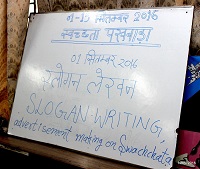 01-15 सितम्बर 2016
स्वच्छता पखवाड़ा
01 सितम्बर 2016
स्लोगन लेखन
SLOGAN WRITING,
advertisement making on Swachchata